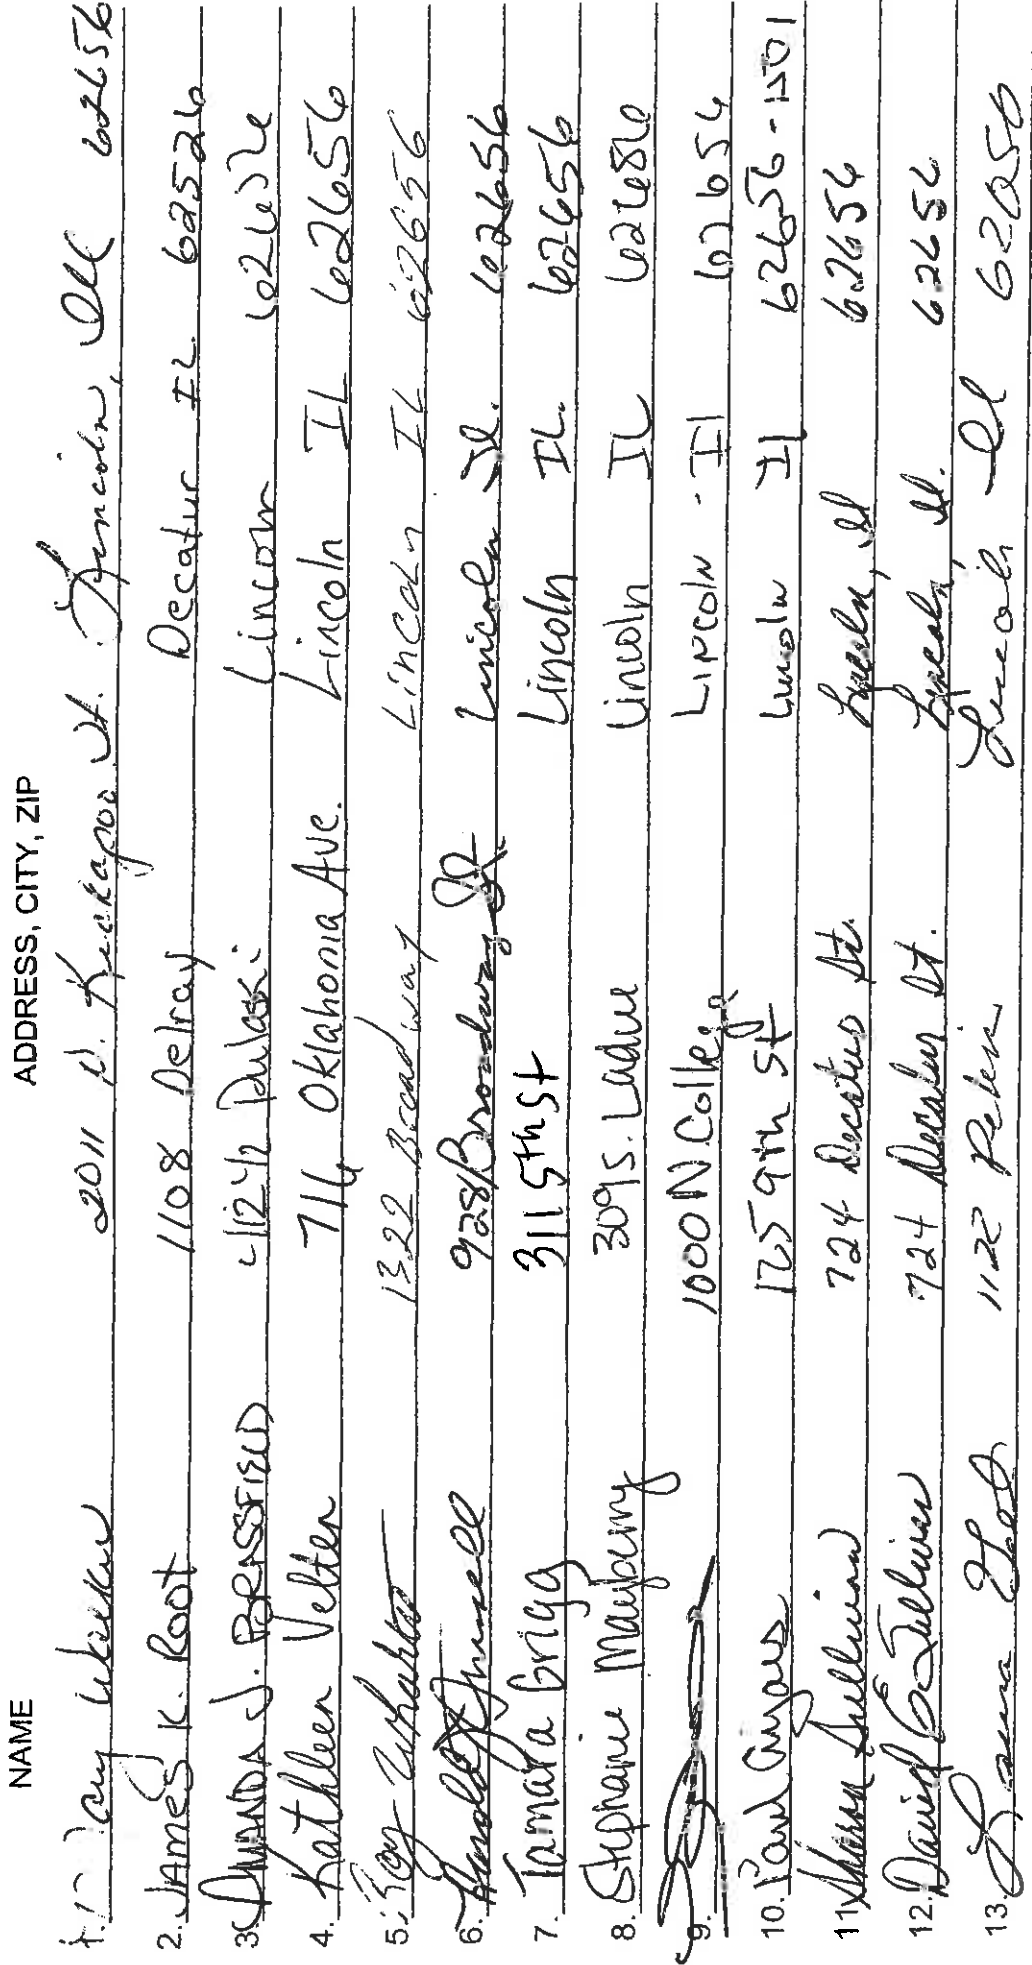 NAME ADDRESS, CITY, ZIP
1. 2011 N. Kickapoo St. Lincoln, Ill 62656
2. JAMES K. Root 1108 Delray Decatur IL. 62526
3. AMANDA J. BRASSFIELD 412 1/2 Pulaski Lincoln
4. Kathleen Velten 716 Oklahoma Ave. Lincoln IL 62656
5. Roy 1322 Broadway Lincoln IL 62656
6. 928 Broadway St Lincoln Il. 62656
7. Tamara Grigg 311 5th St Lincoln IL. 62656
8. Stephanie Mayberry 309 S. Ladue Lincoln IL
9. 1000 N College Lincoln - Il 62656
10. Paul 125 9th St Lincoln Il 62656-1501
11. Sharon Sullivan 724 Decatur St. Lincoln, Il 62656
12. David E Sullivan 724 Decatur St. Lincoln, Il. 62656
13. Laura 1122 Pekin Lincoln Il 62656